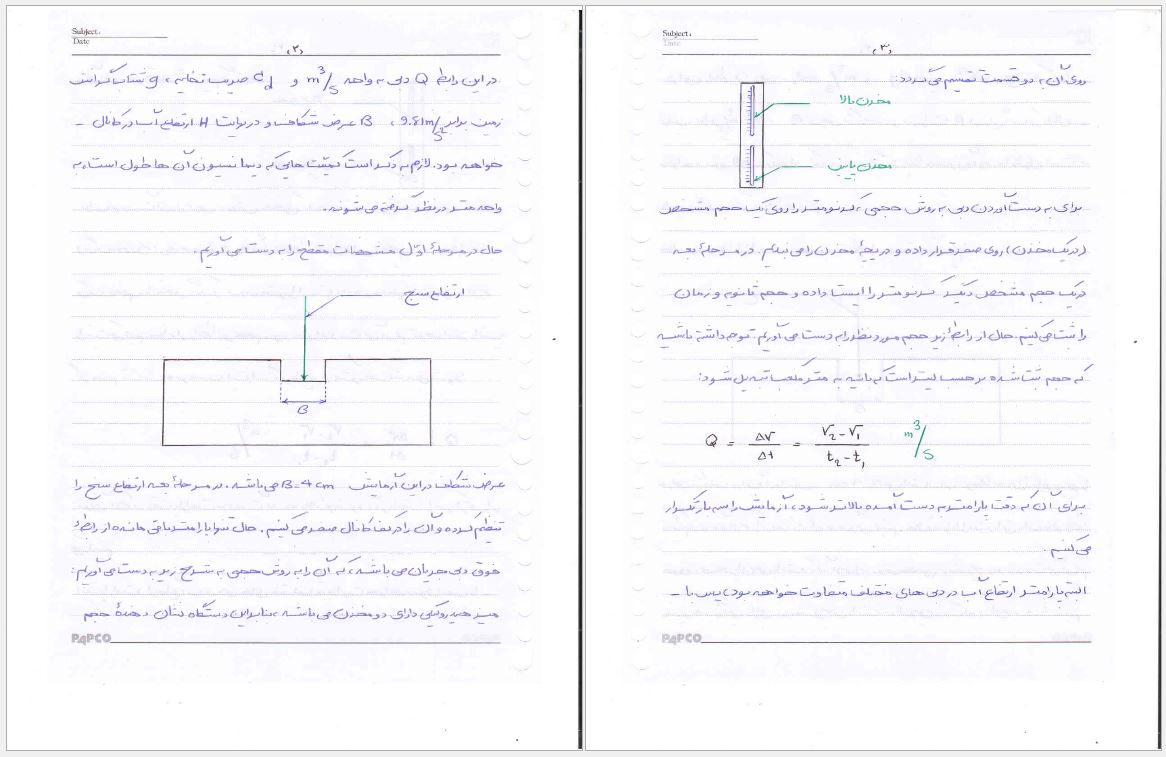 Subject.
Date
(۲)
در این رابطه Q دبی به واحد m³/s و Cd ضریب تخلیه، g شتاب گرانش
زمین برابر 9.81m/s²، B عرض شکاف و در نهایت H ارتفاع آب در کانال –
خواهد بود. لازم به ذکر است کمیت هایی که دیمانسیون آن ها طول است، به
واحد متر در نظر گرفته می شوند.
حال در مرحلهٔ اوّل مشخصات مقطع را به دست می آوریم.
ارتفاع سنج
B
عرض شکاف در این آزمایش B=4 cm می باشد. در مرحلهٔ بعد ارتفاع سنج را
تنظیم کرده و آن را در کف کانال صفر می کنیم. حال تنها پارامتر باقی مانده از رابطهٔ
فوق دبی جریان می باشد، که آن را به روش حجمی به شرح زیر به دست می آوریم:
میز هیدرولیکی دارای دو مخزن می باشد، بنابراین دستگاه نشان دهندهٔ حجم
PAPCO
Subject.
Date
(۳)
روی آن به دو قسمت تقسیم می گردد:
مخزن بالا
مخزن پایین
برای به دست آوردن دبی به روش حجمی، کرنومتر را روی یک حجم مشخص
(در یک مخزن) روی صفر قرار داده و دریچهٔ مخزن را می بندیم. در مرحلهٔ بعد
در یک حجم مشخص دیگر کرنومتر را ایستا داده و حجم ثانویه و زمان
را ثبت می کنیم. حال از رابطهٔ زیر حجم مورد نظر را به دست می آوریم. توجه داشته باشید
که حجم ثبت شده بر حسب لیتر است که باید به متر مکعب تبدیل شود:
Q = ΔV/Δt = V₂-V₁/t₂-t₁ m³/s
برای آن که دقت پارامتر به دست آمده بالاتر شود، آزمایش را سه بار تکرار
می کنیم.
البته پارامتر ارتفاع آب در دبی های مختلف متفاوت خواهد بود، پس با –
PAPCO